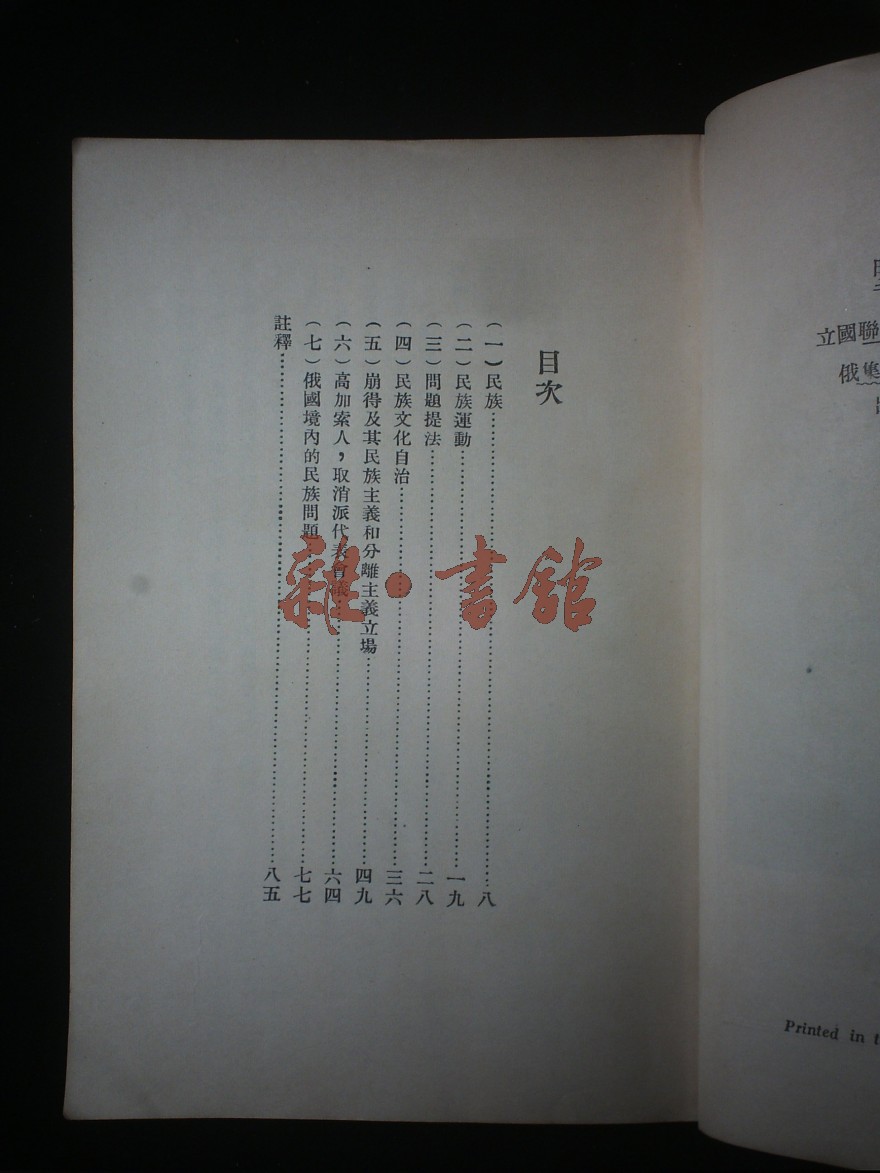 目次
（一）民族……八
（二）民族運動……一九
（三）問題提法……二八
（四）民族文化自治……三六
（五）崩得及其民族主義和分離主義立場……四九
（六）高加索人，取消派代表會議……六四
（七）俄國境內的民族問題……七七
註釋……八五
雜·書館
立國聯
俄
Printed in t